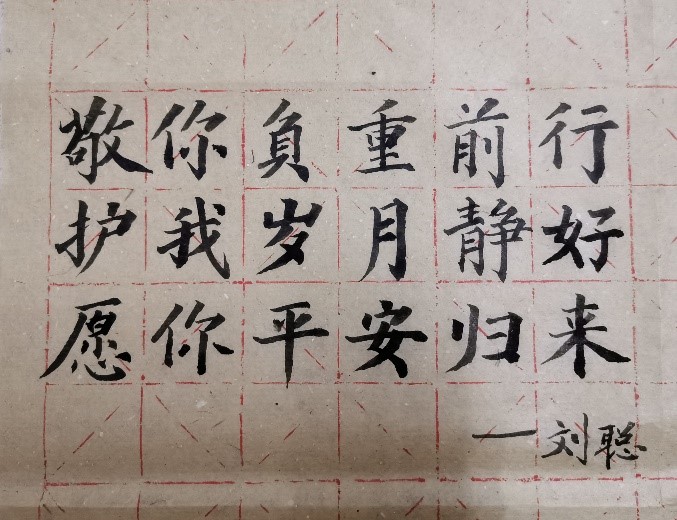 敬你負重前行
护我岁月静好
愿你平安归来
—刘聪